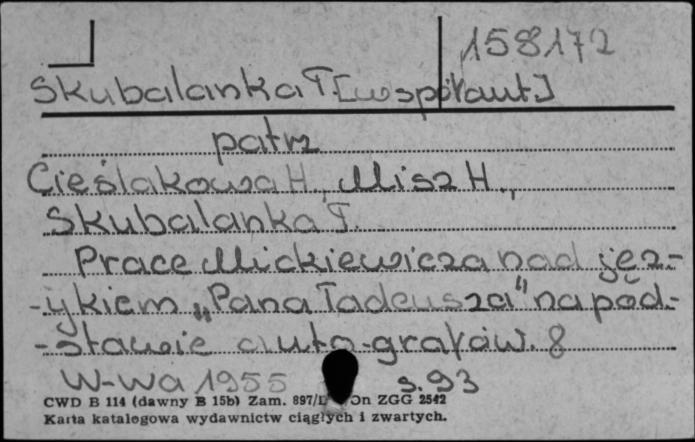 158172
Skubalanka T. [współaut.]
patrz
Cieślakowa H., Misz H.,
Skubalanka T.
Prace Mickiewicza nad jęz-
-ykiem „Pana Tadeusza" na pod-
-stawie auto-grafów. 8
W-wa 1955 s. 93
CWD B 114 (dawny B 15b) Zam. 897/ Dn ZGG 2542
Karta katalogowa wydawnictw ciągłych i zwartych.